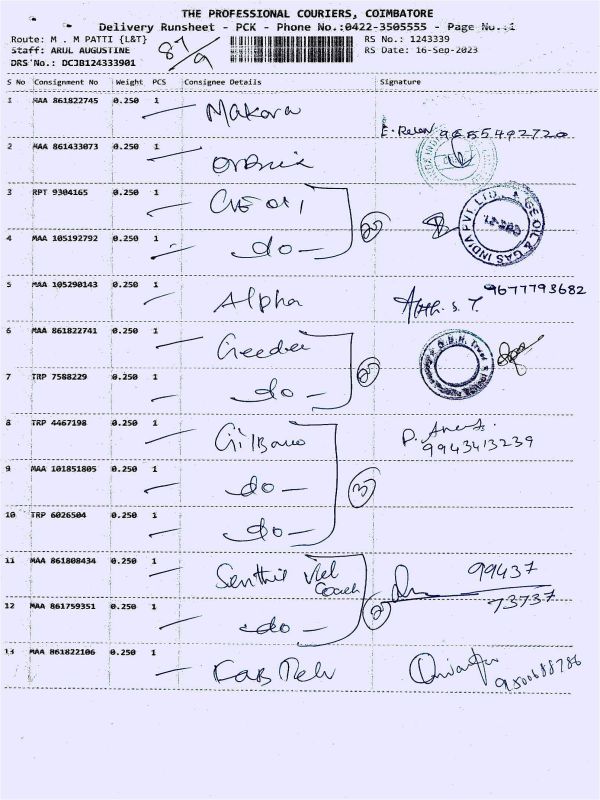 THE PROFESSIONAL COURIERS, COIMBATORE
Delivery Runsheet - PCK - Phone No.:0422-3505555 - Page No.:1
Route: M . M PATTI {L&T} RS No.: 1243339
Staff: ARUL AUGUSTINE RS Date: 16-Sep-2023
DRS No.: DCJB124333901
87/9
S No Consignment No Weight PCS Consignee Details Signature
1 MAA 861822745 0.250 1 Makara
9655492720
2 MAA 861433073 0.250 1
3 RPT 9304165 0.250 1
GE OIL & GAS INDIA PVT. LTD.
4 MAA 105192792 0.250 1 do -
5 MAA 105290143 0.250 1 Alpha 9677793682
6 MAA 861822741 0.250 1
7 TRP 7588229 0.250 1 do -
8 TRP 4467198 0.250 1
9943413239
9 MAA 101851805 0.250 1 do - 3
10 TRP 6026504 0.250 1 do -
11 MAA 861808434 0.250 1 Senthil Vel Coach 99437
73737
12 MAA 861759351 0.250 1 do - 2
13 MAA 861822106 0.250 1 Fab Tech
9500688786